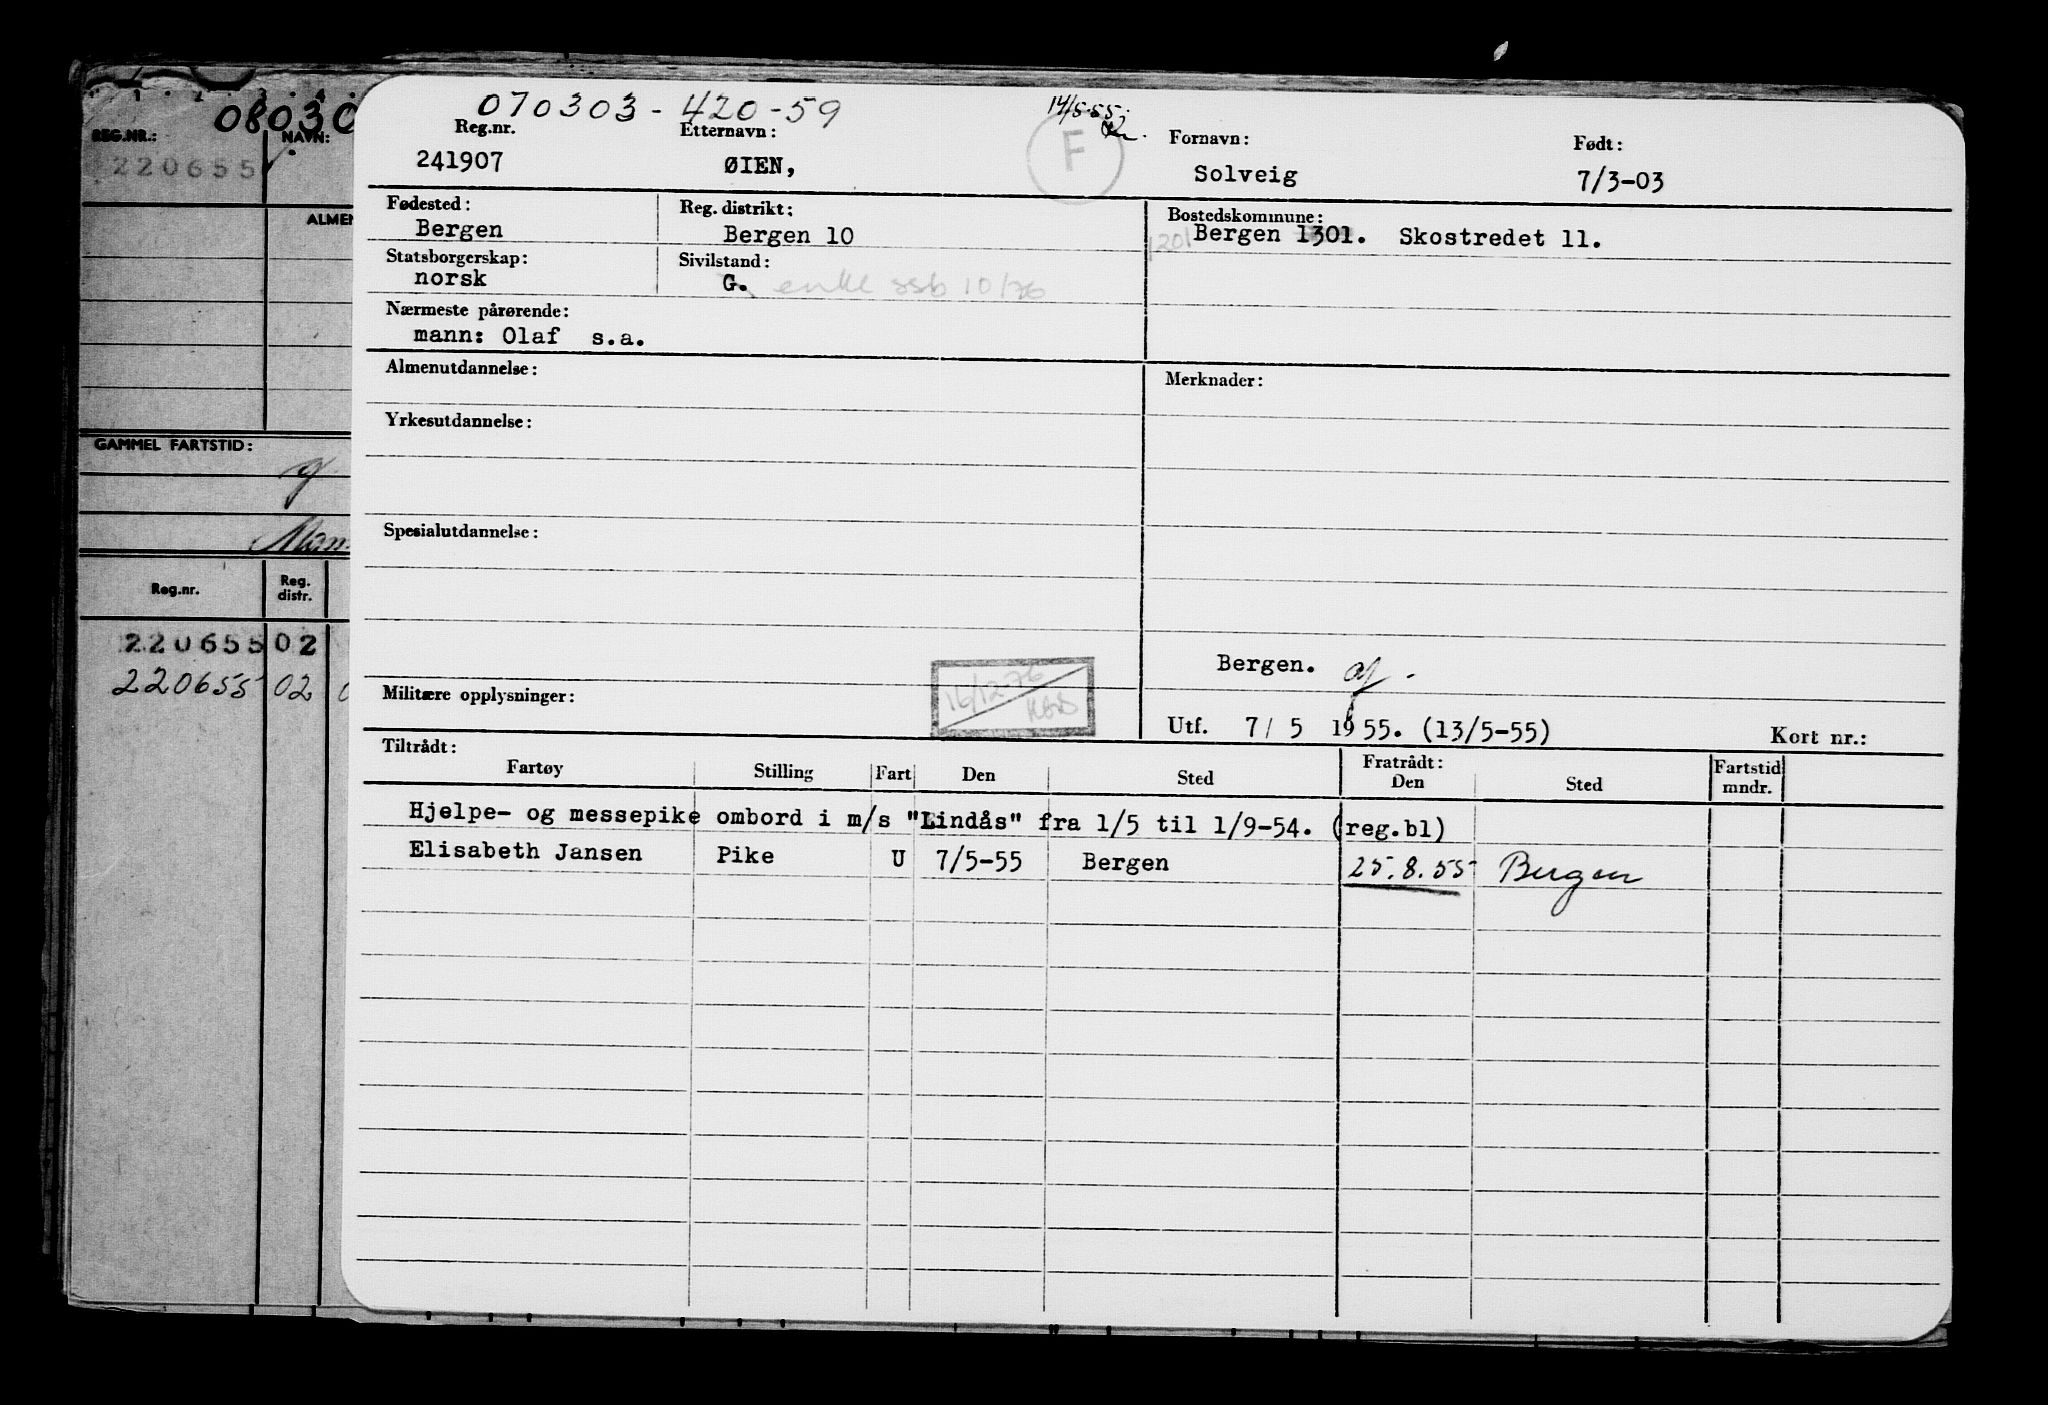 1 2 3 4
0803
REG.NR.: NAVN:
220655
ALMEN
GAMMEL FARTSTID:
Reg.nr. Reg. distr.
220655 02
220655 02
070303 - 420-59 14/5-55.
Reg.nr. Etternavn: F Fornavn: Født:
241907 ØIEN, Solveig 7/3-03
Fødested: Reg. distrikt: Bostedskommune:
Bergen Bergen 10 1201 Bergen 1301. Skostredet 11.
Statsborgerskap: Sivilstand:
norsk G. enke ssb 10/76
Nærmeste pårørende:
mann: Olaf s.a.
Almenutdannelse: Merknader:
Yrkesutdannelse:
Spesialutdannelse:
Bergen.
Militære opplysninger: 16/12-76
Utf. 7/ 5 1955. (13/5-55) Kort nr.:
Tiltrådt: Fratrådt: Fartstid
Fartøy Stilling Fart Den Sted Den Sted mndr.
Hjelpe- og messepike ombord i m/s "Lindås" fra 1/5 til 1/9-54. (reg.bl)
Elisabeth Jansen Pike U 7/5-55 Bergen 25.8.55 Bergen